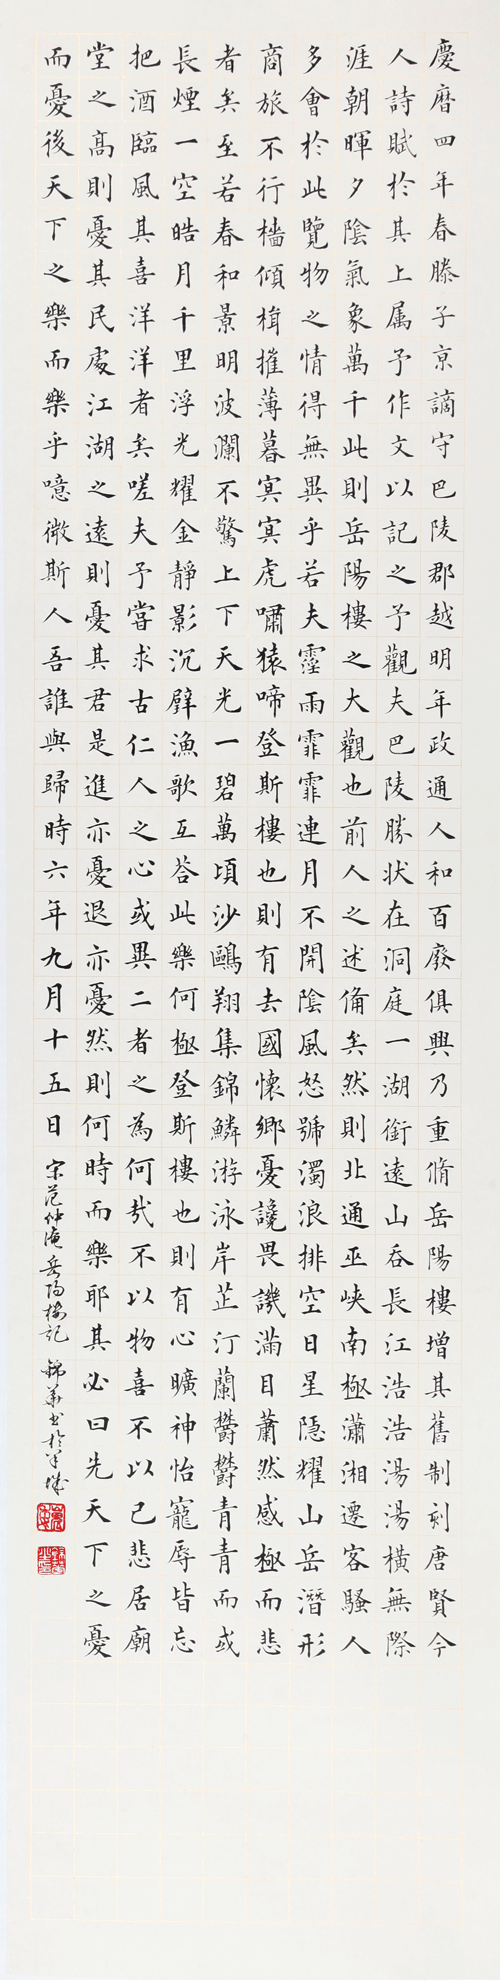 慶曆四年春滕子京謫守巴陵郡越明年政通人和百廢俱興乃重脩岳陽樓增其舊制刻唐賢今
人詩賦於其上属予作文以記之予觀夫巴陵勝状在洞庭一湖銜遠山吞長江浩浩湯湯橫無際
涯朝暉夕陰氣象萬千此則岳陽樓之大觀也前人之述備矣然則北通巫峽南極瀟湘遷客騷人
多會於此覽物之情得無異乎若夫霪雨霏霏連月不開陰風怒號濁浪排空日星隱耀山岳潛形
商旅不行檣傾楫摧薄暮冥冥虎嘯猿啼登斯樓也則有去國懷鄉憂讒畏譏滿目蕭然感極而悲
者矣至若春和景明波瀾不驚上下天光一碧萬頃沙鷗翔集錦鱗游泳岸芷汀蘭鬱鬱青青而或
長煙一空皓月千里浮光耀金靜影沉璧漁歌互荅此樂何極登斯樓也則有心曠神怡寵辱皆忘
把酒臨風其喜洋洋者矣嗟夫予嘗求古仁人之心或異二者之為何哉不以物喜不以己悲居廟
堂之高則憂其民處江湖之遠則憂其君是進亦憂退亦憂然則何時而樂耶其必曰先天下之憂
而憂後天下之樂而樂乎噫微斯人吾誰與歸時六年九月十五日 宋范仲淹岳陽樓記 書於羊城